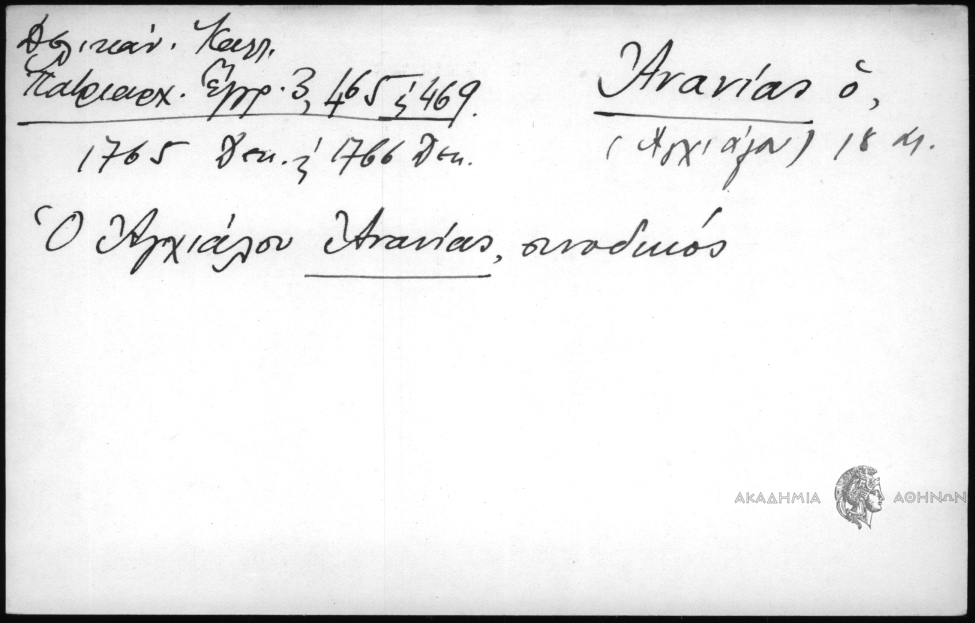 Δελικάν. Καλλ.
Πατριαρχ. Έγγρ. 3, 465 & 469.
1765 Δεκ. & 1766 Δεκ.
Ἀνανίας ὁ,
(Ἀγχιάλου) 18 αι.
Ὁ Ἀγχιάλου Ἀνανίας, συνοδικός
ΑΚΑΔΗΜΙΑ ΑΘΗΝΩΝ